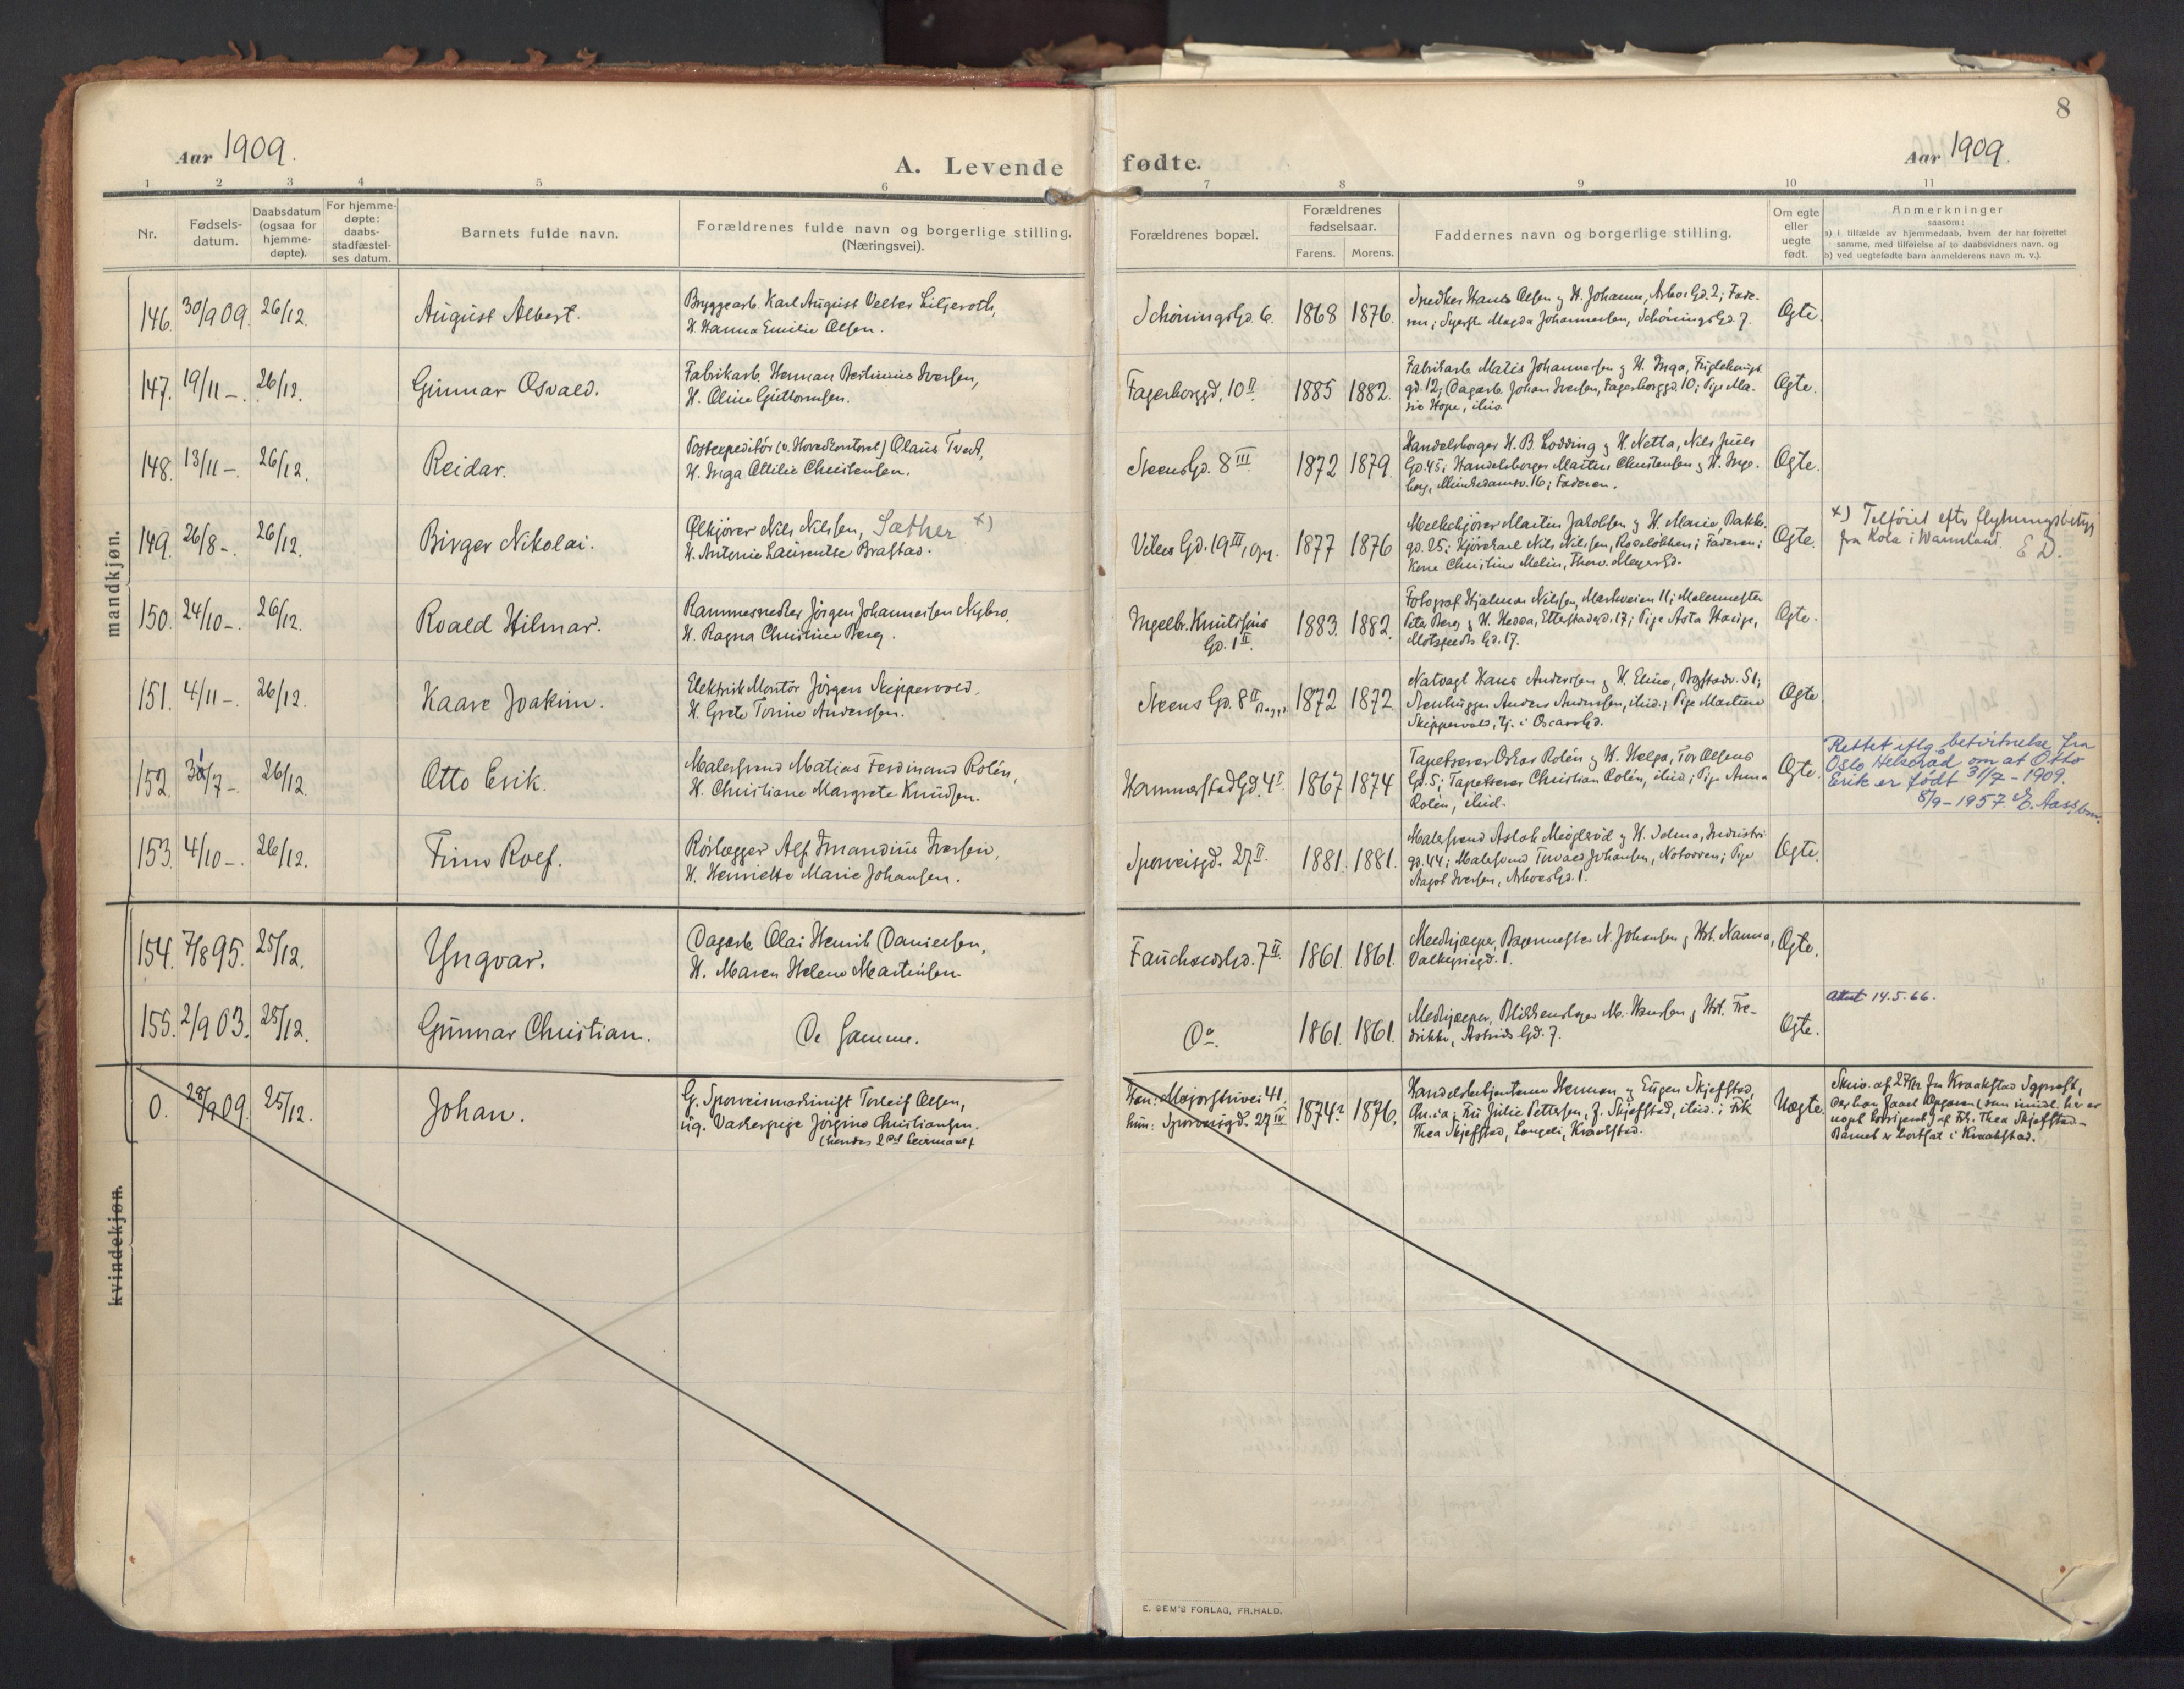 8
Aar 1909.
A. Levende fødte.
Aar 1909.
1 2 3 4 5 6 7 8 9 10 11
Nr.
Fødsels-
datum.
Daabsdatum
(ogsaa for
hjemme-
døpte).
For hjemme-
døpte:
daabs-
stadfæstel-
ses datum.
Barnets fulde navn.
Forældrenes fulde navn og borgerlige stilling.
(Næringsvei).
Forældrenes bopæl.
Forældrenes
fødselsaar.
Farens. Morens.
Faddernes navn og borgerlige stilling.
Om egte
eller
uegte
født.
Anmerkninger
saasom:
a) i tilfælde av hjemmedaab, hvem der har forrettet
samme, med tilføielse af to daabsvidners navn, og
b) ved uegtefødte barn anmelderens navn m. v.).
mandkjøn.
146. 30/9 09. 26/12. August Albert.
Bryggearb. Karl August Velter Liljeroth,
H. Hanna Emilie Olsen.
Schøningsgd. 6. 1868 1876.
Snedker Hans Olsen og H. Johanne, Arbosgd. 2; Fade-
ren; Syerske Magda Johannessen, Schøningsgd. 7.
Egte.
147. 19/11 -. 26/12. Gunnar Osvald.
Fabrikarb. Herman Bertinius Iversen,
H. Oline Guttormsen.
Fagerborggd. 10 II. 1885 1882.
Fabrikarb. Matis Johannessen og H. Inga, Fuglehaugs
gd. 12; Dagarb. Johan Iversen, Fagerborggd. 10; Pige Ma-
rie Hope, ibid.
Egte.
148. 13/11 -. 26/12. Reidar.
Postexpeditør (v. Hovedkontoret) Olaus Tvedt,
H. Inga Ottilie Christensen.
Steensgd. 8 III. 1872 1879.
Handelsborger H. B. Lodding og H. Netta, Nils Juels
Gd. 45; Handelsborger Martin Christensen og H. Inge-
borg, Munkedamsv. 16; Faderen.
Egte.
149. 26/8 -. 26/12. Birger Nikolai.
Ølkjører Nils Nilsen, Sæther x)
H. Antonie Laurentse Brastad.
Vibes Gd. 19 III, opg. 1877 1876
Melkekjører Martin Jakobsen og H. Marie, Bakke-
gd. 25; Kjørekarl Nils Nilsen, Rodeløkken; Faderen;
Kone Christine Melin, Thorv. Meyersgd.
Egte.
x) Tilføiet efter flytningsbetyg
fra Kola i Wärmland. E D.
150. 24/10 -. 26/12. Roald Hilmar.
Rammesnedker Jørgen Johannessen Nybro,
H. Ragna Christine Berg.
Ingelb. Knutssøns
Gd. 1 II. 1883. 1882.
Fotograf Hjalmar Nilsen, Markveien 11; Malermester
Peter Berg og H. Hedda, Etterstadgd. 17; Pige Asta Hauge,
Motzfeldts Gd. 17.
Egte.
151. 4/11 -. 26/12. Kaare Joakim.
Elektrisk Montør Jørgen Skippervold,
H. Grete Torine Anderssen.
Steens Gd. 8 II 1872 1872
Natvagt Hans Anderssen og H. Eline, Bogstadv. 51;
Stenhugger Anders Anderssen, ibid.; Pige Martine
Skippervold, tj. i Oscarsgd.
Egte.
152. 31/7 -. 26/12. Otto Erik.
Malersvend Matias Ferdinand Rolén,
H. Christiane Margrete Knudsen.
HammerstadGd. 4 I. 1867 1874
Tapetserer Oskar Rolén og H. Helga, Tor Olsens
Gd. 5; Tapetserer Christian Rolén, ibid.; Pige Anna
Rolén, ibid.
Egte.
Rettet iflg. bekreftelse fra
Oslo Helseråd om at Otto
Erik er født 31/7 - 1909.
8/9 - 1957. E. Aass
153. 4/10 -. 26/12. Finn Rolf.
Rørlægger Alf Imandius Iversen,
H. Henriette Marie Johansen.
Sporveisgd. 27 II. 1881. 1881.
Malersvend Aslak Meglerød og H. Selma, Industri-
gd. 44; Malersvend Torvald Johansen, Notodden; Pige
Aagot Iversen, Arbosgd. 1.
Egte.
154. 7/8 95. 25/12. Yngvar.
Dagarb. Olai Henrik Danielsen,
H. Maren Helene Martinsen.
Fauchaldsgd. 7 II. 1861. 1861.
Medhjælper, Bagermester N. Johansen og Hst. Nanna,
Valkyriegd. 1.
Egte.
155. 2/9 03. 25/12. Gunnar Christian.
De Samme.
Do. 1861. 1861.
Medhjælper, Blikkenslager M. Hansen og Hst. Fre-
drikke, Astrids Gd. 7.
Egte.
Attest 14.5.66.
0. 28/9 09. 25/12. Johan.
G. Sporveismaskinist Torleif Olsen,
ug. Vaskerpige Jørgine Christiansen.
(hendes 2det Leiermaal)
Han: Majorstuvei 41,
hun: Sporveisgd. 27 IV. 1874? 1876.
Handelsbetjentene Herman og Eugen Skjefstad,
Chr.ia; Fru Julie Pettersen, f. Skjefstad, ibid.; Frk
Thea Skjefstad, Langeli, Kraakstad.
Uegte.
Skriv. af 27/12 fra Kraakstad Sgprest,
der har faaet Opgaven (som imidl. her er
noget korrigeret) af Frk. Thea Skjefstad.-
Barnet er bortsat i Kraakstad.
kvindekjøn.
E. SEM'S FORLAG, FR.HALD.